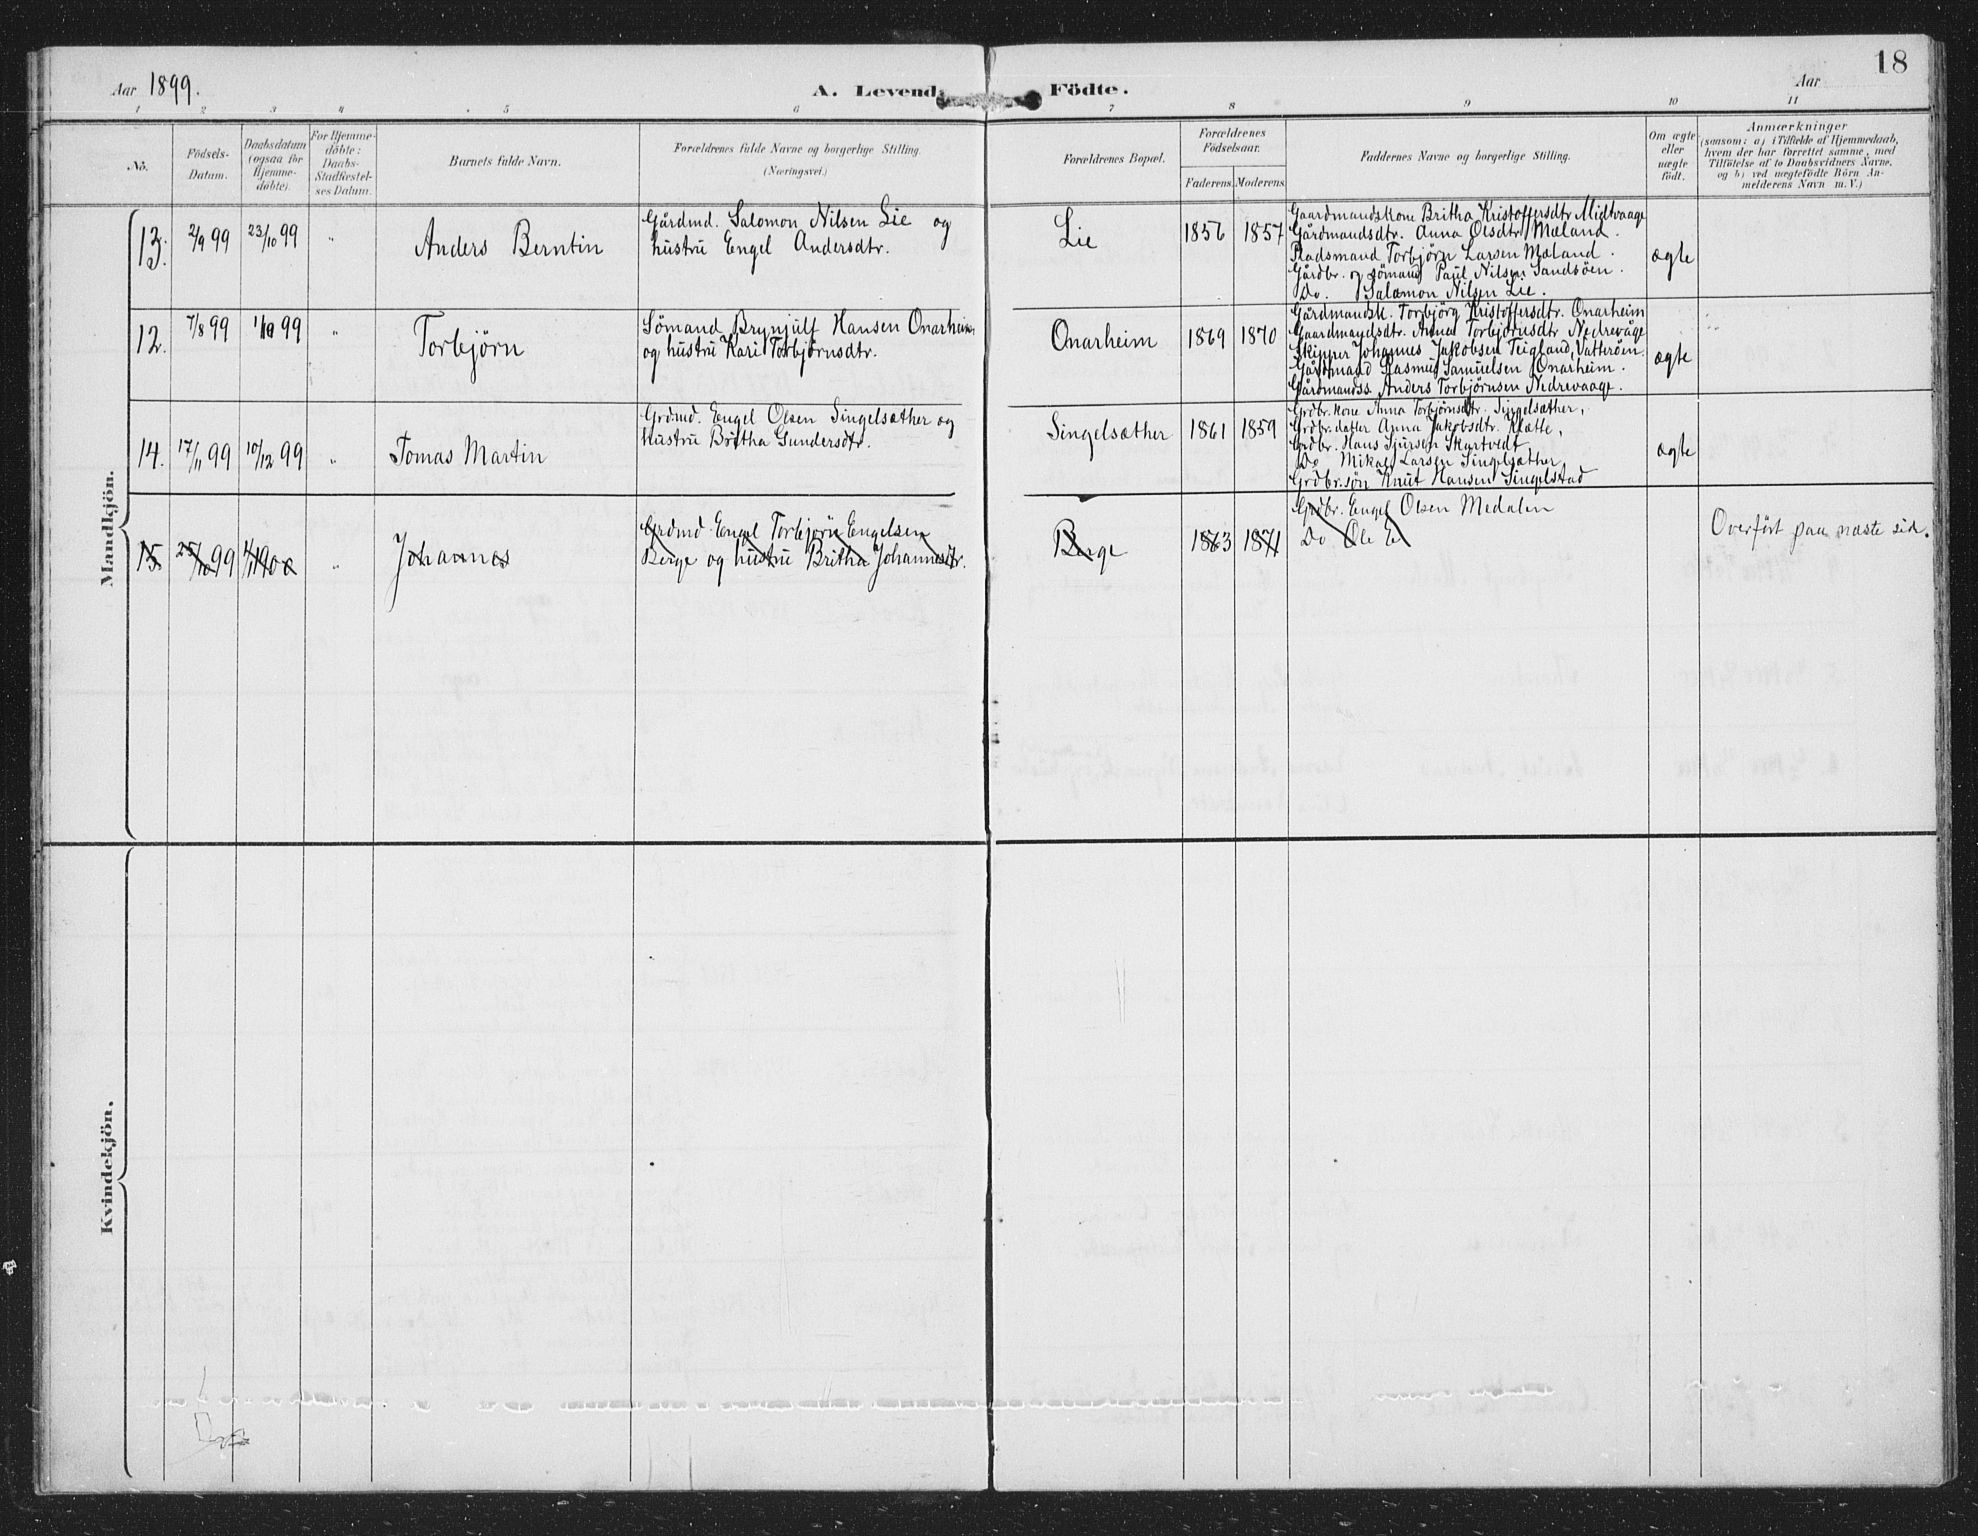 18
Aar 1899.
A. Levend
Födte.
Aar
1 2 3 4 5 6 7 8 9 10 11
No.
Födsels-Datum.
Daabsdatum (ogsaa för Hjemmedöbte).
For Hjemmedöbte: Daabs-Stadfæstelses Datum.
Barnets fulde Navn.
Forældrenes fulde Navne og borgerlige Stilling.
(Næringsvei.)
Forældrenes Bopæl.
Forældrenes Födselsaar.
Faderens. Moderens.
Faddernes Navne og borgerlige Stilling.
Om ægte eller uægte födt.
Anmærkninger
(saasom: a) i Tilfælde af Hjemmedaab,
hvem der har forrettet samme, med
Tilföielse af to Daabsvidners Navne,
og b) ved uægtefödte Börn An-
melderens Navn m. V.)
Mandkjön.
13. 2/9 99 23/10 99 " Anders Berntin
Gårdmd. Salomon Nilsen Lie og
hustru Engel Andersdtr.
Lie 1856 1857
Gaardmandskone Britha Kristoffersdtr Midtvaage
Gårdmandsdtr. Anna Olsdtr Mæland.
Pladsmand Torbjörn Larsen Mæland.
Gårdbr. og sömand Paul Nilsen Sandsöen.
Do. Salomon Nilsen Lie.
ægte
12. 7/8 99 1/10 99 " Torbjörn
Sömand Brynjulf Hansen Onarheim
og hustru Kari Torbjörnsdtr.
Onarheim 1869 1870
Gårdmandsk. Torbjörg Kristoffersdtr. Onarheim
Gaardmandsdtr. Anna Torbjörnsdtr Nedrevåge
Skipper Johannes Jakobsen Teigland, Vatteröen.
Gårdmand Rasmus Samuelsen Onarheim.
Gårdmandss. Anders Torbjörnsen Nedrevaage.
ægte
14. 17/11 99 10/12 99 " Tomas Martin
Grdmd. Engel Olsen Singelsæther og
hustru Britha Gundersdtr.
Singelsæther 1861 1859
Grdbr.kone Anna Torbjörnsdtr. Singelsæther,
Grdbr.datter Anna Jakobsdtr. Klætte,
Grdbr. Hans Sjursen Skartvedt
Do Mikael Larsen Singelsæther
Grdbr.sön Knut Hansen Singelstad
ægte
15. 25/10 99 1/1 1900 " Johannes
Grdmd. Engel Torbjörn Engelsen
Berge og hustru Britha Johannesdtr.
Berge 1863 1871
Grdbr. Engel Olsen Medalen
Do Ole E
Overfört paa næste sid.
Kvindekjön.